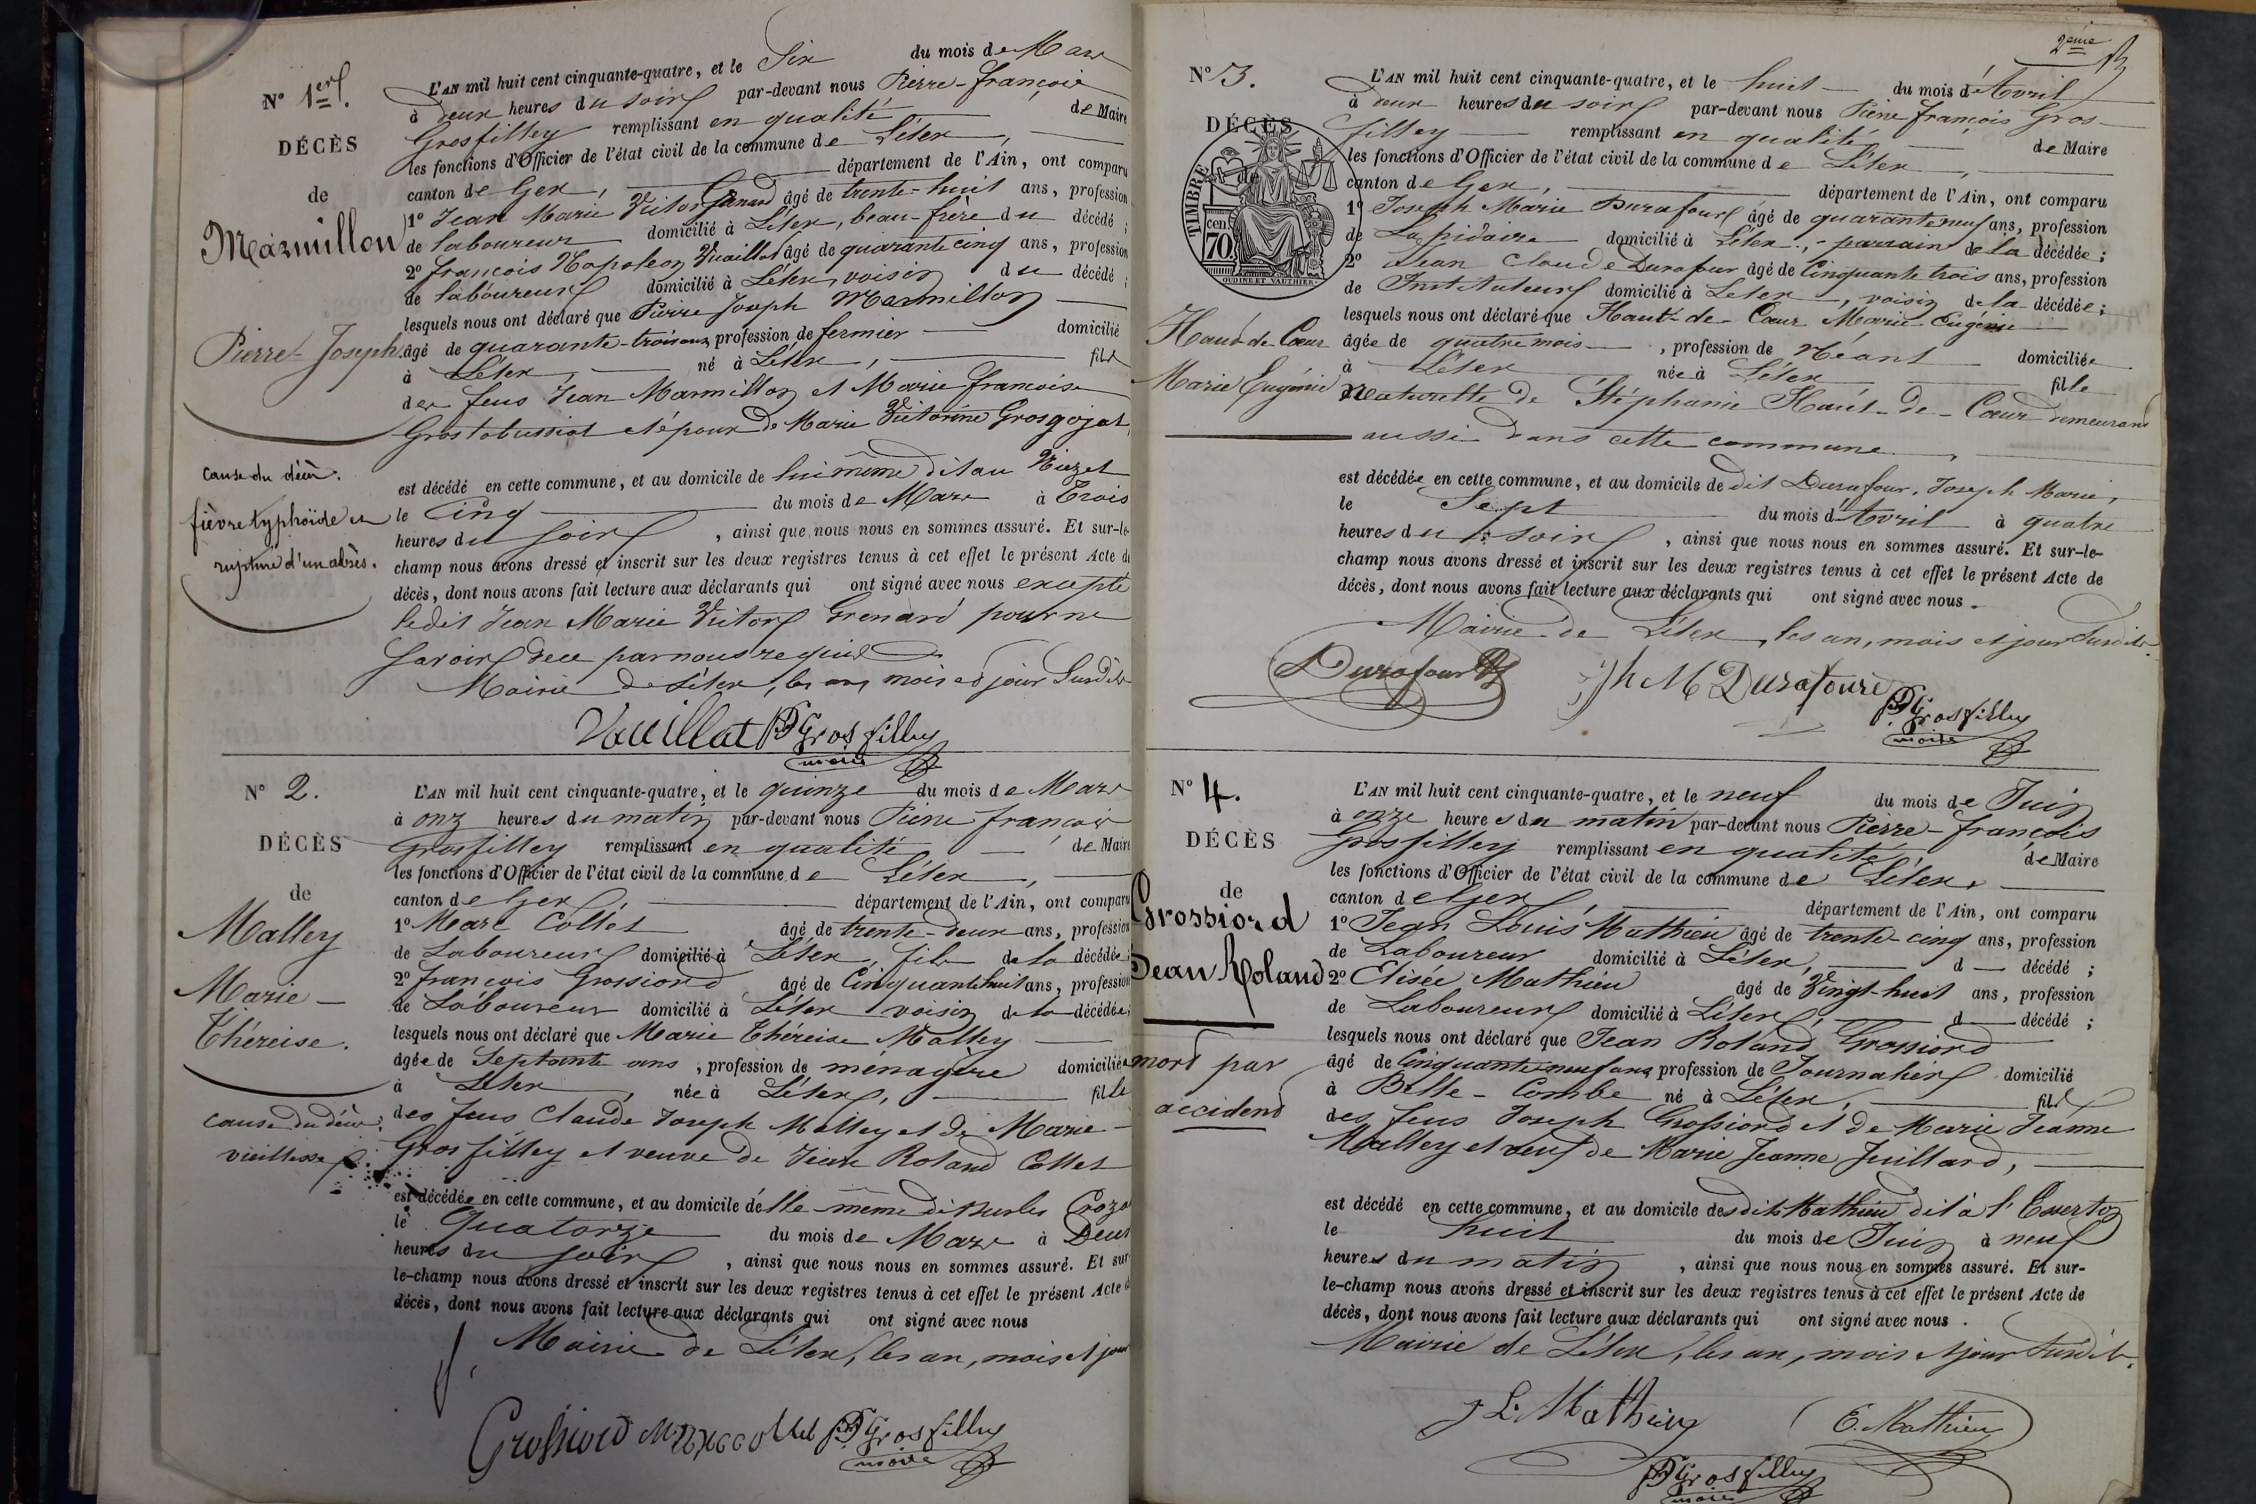 N° 1er.
DÉCÈS
de
Marmillon
Pierre-Joseph.
cause du décès.
fièvre typhoïde et
rupture d'un abcès.
L'AN mil huit cent cinquante-quatre, et le Six du mois de Mars
à deux heures du soir par-devant nous Pierre-François
Grosfilley remplissant en qualité de Maire
les fonctions d'Officier de l'état civil de la commune de Lélex,
canton de Gex, département de l'Ain, ont comparu
1° Jean Marie Victor Grenard âgé de trente-huit ans, profession
de laboureur domicilié à Lélex, beau-frère du décédé;
2° François Napoléon Vuaillat âgé de quarante cinq ans, profession
de laboureur domicilié à Lélex, voisin du décédé;
lesquels nous ont déclaré que Pierre Joseph Marmillon
âgé de quarante-trois ans, profession de fermier domicilié
à Lélex, né à Lélex, fils
des feus Jean Marmillon et Marie Françoise
et époux de Marie Victorine Grosgojat,
est décédé en cette commune, et au domicile de lui même dit au Niezet
le Cinq du mois de Mars à Trois
heures du soir, ainsi que nous nous en sommes assuré. Et sur-le-
champ nous avons dressé et inscrit sur les deux registres tenus à cet effet le présent Acte de
décès, dont nous avons fait lecture aux déclarants qui ont signé avec nous excepté
ledit Jean Marie Victor Grenard pour ne
savoir de ce par nous requis
Mairie de Lélex, les an, mois et jour Susdits
Vauillat PF Grosfilley
maire
N° 2.
DÉCÈS
de
Malley
Marie-
Théreise.
cause du décès,
vieillesse
L'AN mil huit cent cinquante-quatre, et le quinze du mois de Mars
à onz heures du matin par-devant nous Pierre François
Grosfilley remplissant en qualité de Maire
les fonctions d'Officier de l'état civil de la commune de Lélex,
canton de Gex, département de l'Ain, ont comparu
1° Marc Collet âgé de trente-deux ans, profession
de Laboureur domicilié à Lélex, fils de la décédée;
2° François Grossiord âgé de Cinquante huit ans, profession
de Laboureur domicilié à Lélex voisin de la décédée;
lesquels nous ont déclaré que Marie Théreise Malley
âgée de Septante ans, profession de ménagère domiciliée
à Lélex, née à Lélex, fille
des feus Claude Joseph Malley et de Marie-
Grosfilley et veuve de Jean Roland Collet
est décédée en cette commune, et au domicile d'elle-même dit sur les
le Quatorze du mois de Mars à Deux
heures du soir, ainsi que nous nous en sommes assuré. Et sur
le-champ nous avons dressé et inscrit sur les deux registres tenus à cet effet le présent Acte de
décès, dont nous avons fait lecture aux déclarants qui ont signé avec nous
Mairie de Lélex, les an, mois et jour
Grossiord Marc Collet PF Grosfilley
maire
2ème
N° 3.
DÉCÈS
de
TIMBRE
70. cen
OUDINÉ ET VAUTHIER
Haut-de-Cœur
Marie Eugénie
L'AN mil huit cent cinquante-quatre, et le huit du mois d'Avril
à deux heures du soir par-devant nous Pierre François Gros-
filley remplissant en qualité de Maire
les fonctions d'Officier de l'état civil de la commune de Lélex,
canton de Gex, département de l'Ain, ont comparu
1° Joseph Marie Durafour âgé de quarante neuf ans, profession
de Lapidaire domicilié à Lélex, parrain de la décédée;
2° Jean Claude Durafour âgé de Cinquante trois ans, profession
de Instituteur domicilié à Lelex, voisin de la décédée;
lesquels nous ont déclaré que Haut-de-Cœur Marie Eugénie
âgée de quatre mois, profession de Néant domiciliée
à Lélex née à Lélex fille
Naturelle de Stéphanie Haut-de-Cœur demeurant
aussi dans cette commune,
est décédée en cette commune, et au domicile de dit Durafour, Joseph Marie,
le Sept du mois d'Avril à quatre
heures du soir, ainsi que nous nous en sommes assuré. Et sur-le-
champ nous avons dressé et inscrit sur les deux registres tenus à cet effet le présent Acte de
décès, dont nous avons fait lecture aux déclarants qui ont signé avec nous.
Mairie de Lélex, les an, mois et jour Susdits.
Durafour Jh M Durafour PF Grosfilley
maire
N° 4.
DÉCÈS
de
Grossiord
Jean Roland
mort par
accident
L'AN mil huit cent cinquante-quatre, et le neuf du mois de Juin
à onze heures du matin par-devant nous Pierre-François
Grosfilley remplissant en qualité de Maire
les fonctions d'Officier de l'état civil de la commune de Lélex,
canton de Gex, département de l'Ain, ont comparu
1° Jean Louis Mathieu âgé de trente-cinq ans, profession
de Laboureur domicilié à Lélex, d décédé;
2° Elisée Mathieu âgé de Vingt-huit ans, profession
de Laboureur domicilié à Lélex, d décédé;
lesquels nous ont déclaré que Jean Roland Grossiord
âgé de Cinquante neuf ans profession de Journalier domicilié
à Belle-Combe né à Lélex, fils
des feus Joseph Grossiord et de Marie Jeanne
Malley et veuf de Marie Jeanne Juillard,
est décédé en cette commune, et au domicile desdits Mathieu dit à l'
le huit du mois de Juin à neuf
heures du matin, ainsi que nous nous en sommes assuré. Et sur-
le-champ nous avons dressé et inscrit sur les deux registres tenus à cet effet le présent Acte de
décès, dont nous avons fait lecture aux déclarants qui ont signé avec nous.
Mairie de Lélex, les an, mois et jour Susdits.
J L Mathieu E. Mathieu
PF Grosfilley
maire